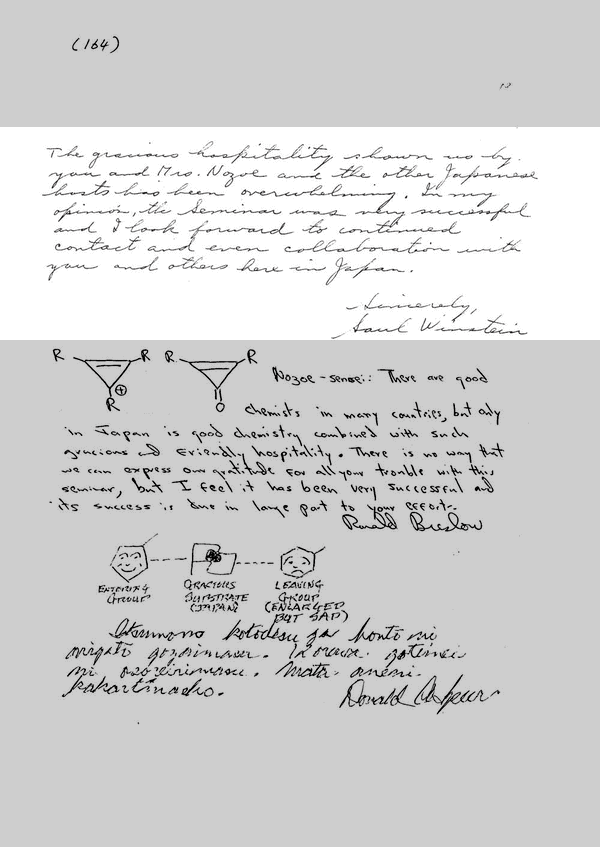 (164)
The gracious hospitality shown us by
you and Mrs. Nozoe and the other Japanese
hosts has been overwhelming. In my
opinion, the Seminar was very successful
and I look forward to continued
contact and even collaboration with
you and others here in Japan.
Sincerely,
Saul Winstein
R R R R
⊕
R O
Nozoe-sensei: There are good
chemists in many countries, but only
in Japan is good chemistry combined with such
gracious and friendly hospitality. There is no way that
we can express our gratitude for all your trouble with this
seminar, but I feel it has been very successful and
its success is due in large part to your efforts.
Ronald Breslow
ENTERING GROUP
GRACIOUS SUBSTRATE (JAPAN)
LEAVING GROUP (ENLARGED BUT SAD)
kotodesu ga honto ni
mata
Donald